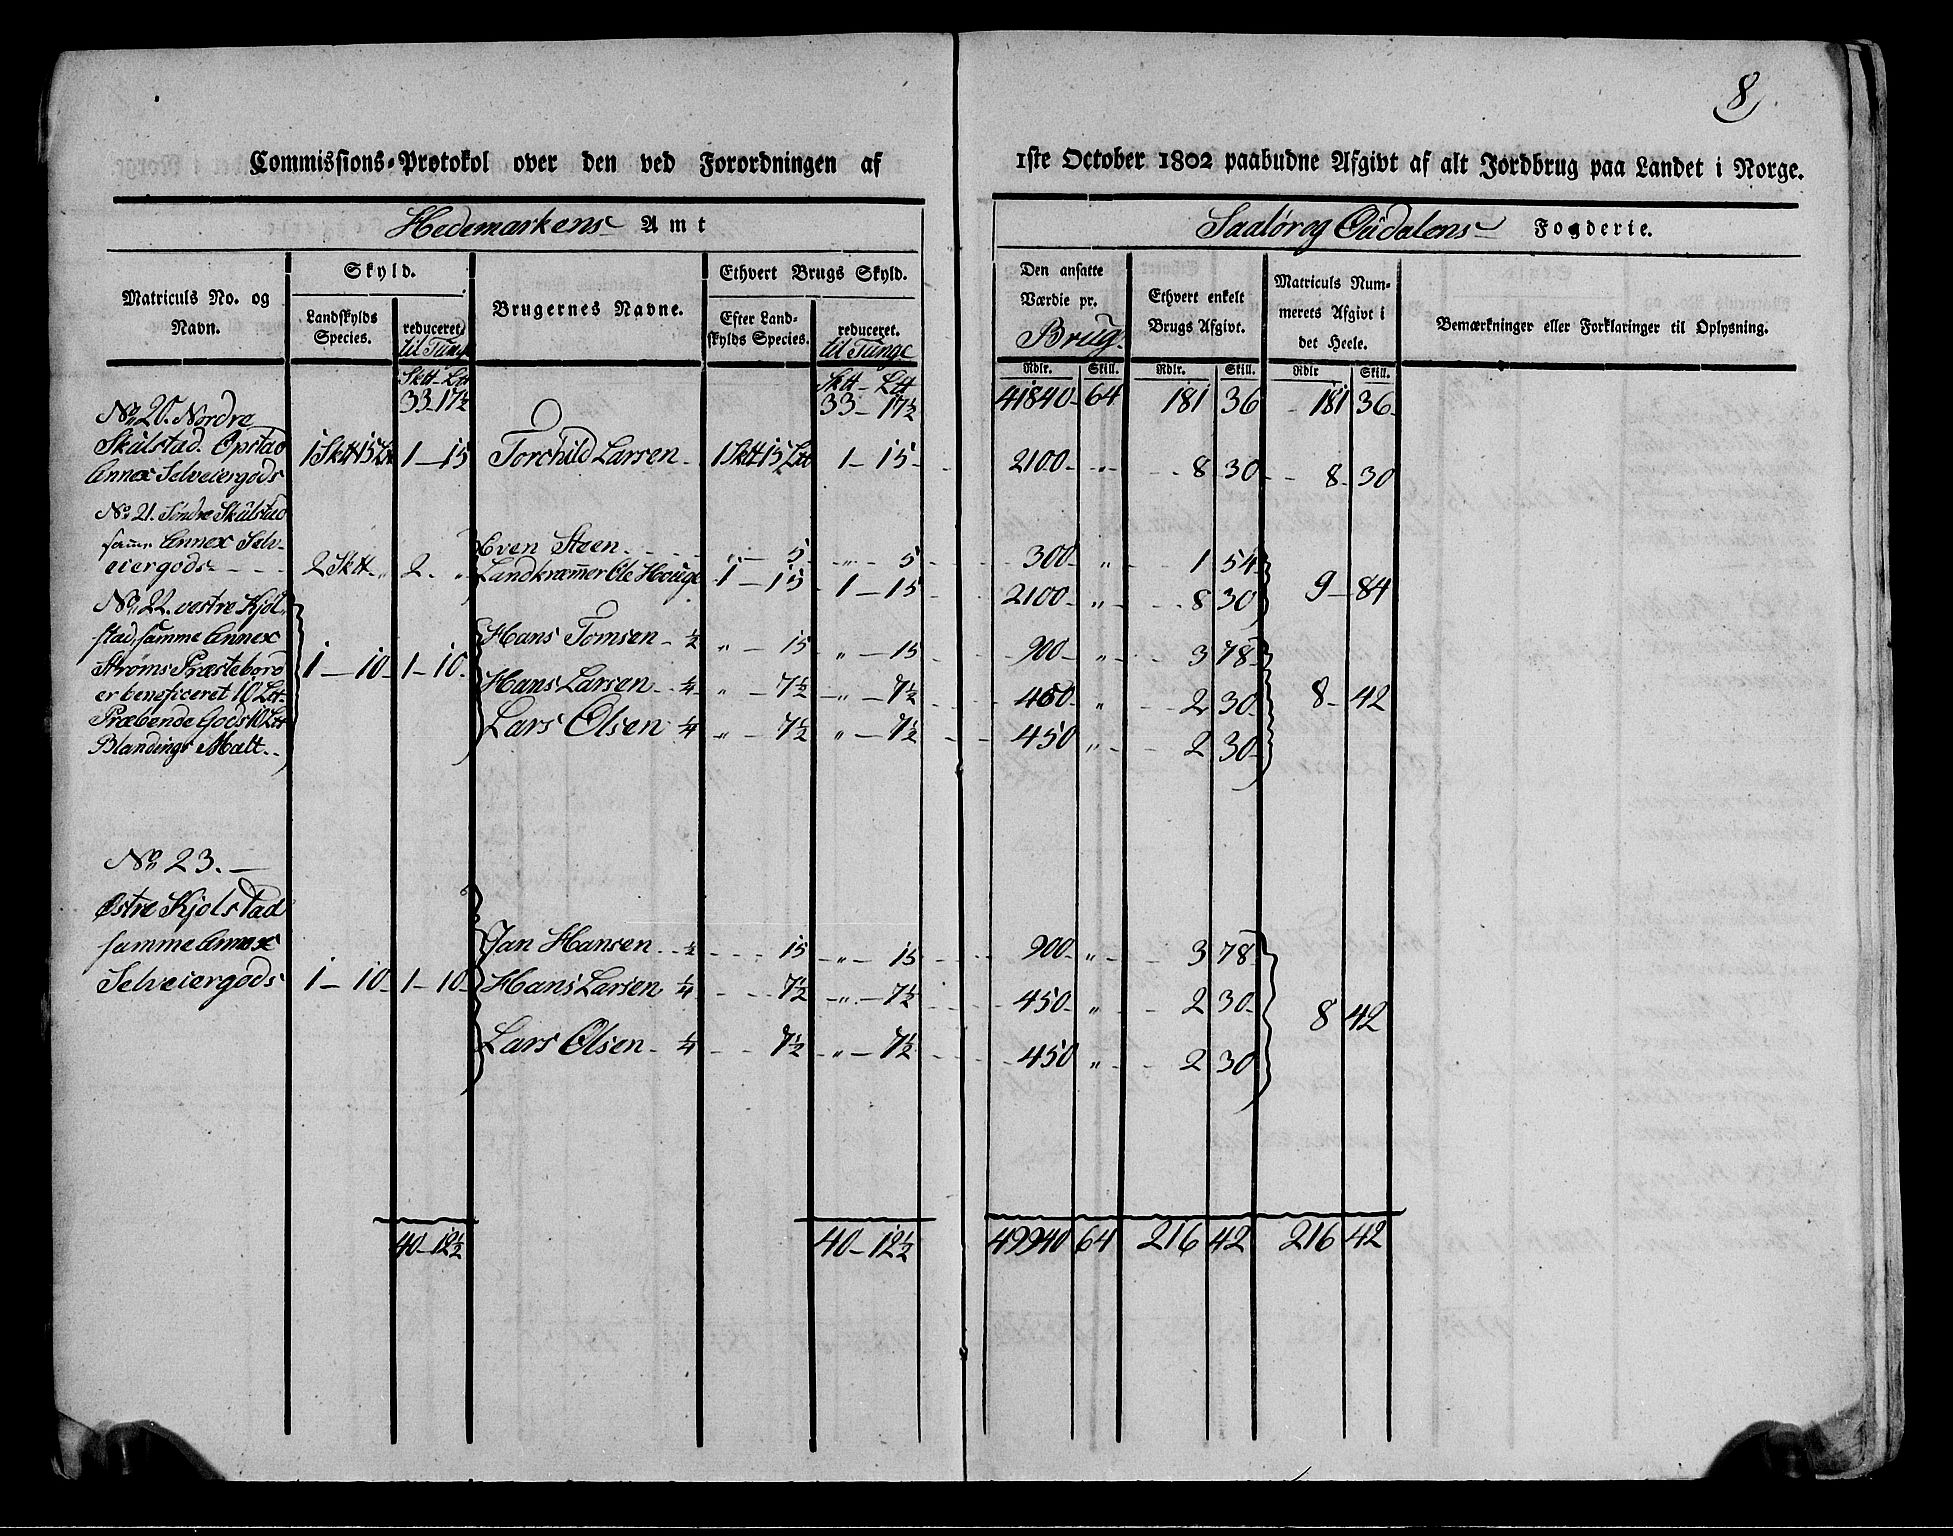 8
Commissions-Protokol over den ved Forordningen af 1ste October 1802 paabudne Afgivt af alt Jordbrug paa Landet i Norge.
Hedemarkens Amt Saalør og Oudalens Fogderie.
Matriculs No. og Navn.
Skyld.
Landskylds Species.
reduceret til Tunge
Brugernes Navne.
Ethvert Brugs Skyld.
Efter Landskylds Species.
reduceret. til Tunge
Den ansatte Værdie pr. Brug.
Ethvert enkelt Brugs Afgivt.
Matriculs Nummerets Afgivt i det Heele.
Bemærkninger eller Forklaringer til Oplysning.
Rdlr. Skill. Rdlr. Skill. Rdlr Skill.
Sktt - Ltt Sktt - Ltt
33-17½ 33-17½ 41840-64 181 36 181 36
No 20. Nordre
Skulstad. Opstad 1 Sktt 15 Ltt 1-15 Torchild Larsen 1 Sktt 15 Ltt 1-15 2100 „ 8 30 8-30
Annex Selveiergods
No 21. Søndre Skulstad
samme Annex Selv- Even Steen „-5 „-5 300 „ 1 54
eiergods 2 Sktt „ 2. „ Landkræmmer Ole Houge 1-15 1-15 2100 „ 8 30 9-84
No 22. vestre Kjol-
stad, samme Annex Hans Tomsen ½ „-15 „-15 900 „ 3 78
Strøms Præstebord 1-10 1-10 Hans Larsen ¼ „-7½ „-7½ 450 „ 2 30 8-42
er beneficeret 10 Ltt
Præbende Gods 10 Ltt Lars Olsen ¼ „-7½ „-7½ 450 „ 2 30
Blandings Malt
No 23.
Østre Kjolstad
samme Annex Jan Hansen ½ 15 „-15 900 „ 3 78
Selveiergods 1-10 1-10 Hans Larsen ¼ 7½ „-7½ 450 „ 2 30 8 42
Lars Olsen ¼ 7½ „-7½ 450 „ 2 30
40-12½ 40-12½ 49940 64 216 42 216 42